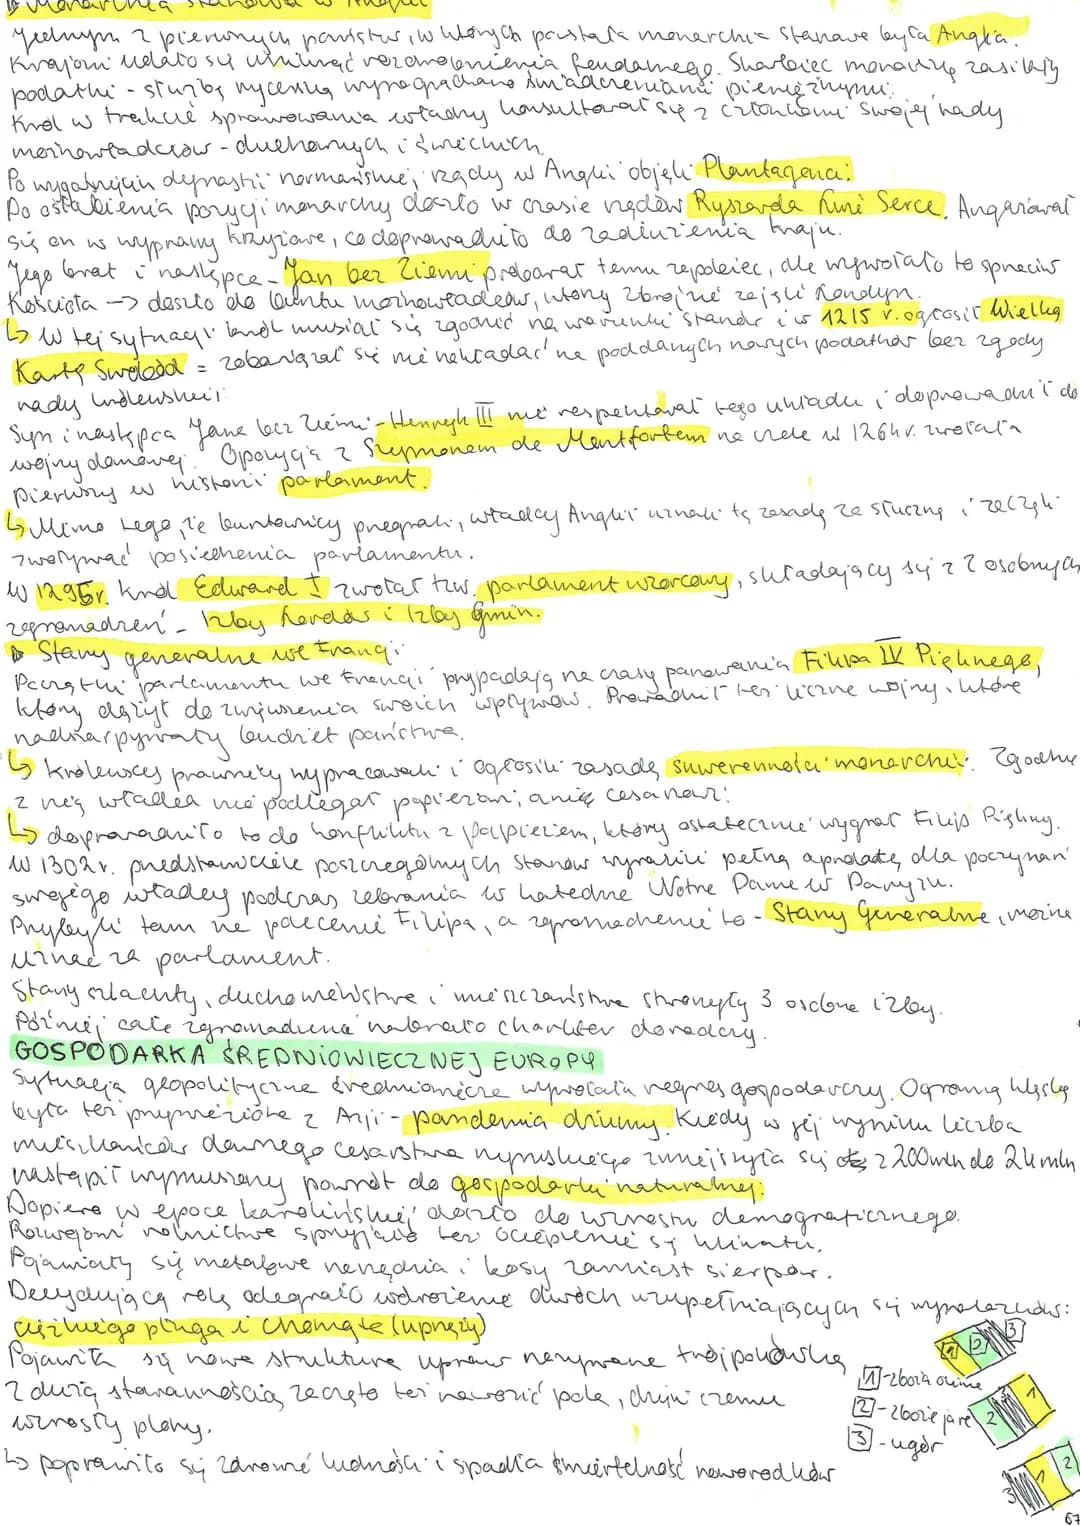 Monarchia stanowa w Anglii
Jednym z pierwszych państw, w których powstała monarchia stanowa była Anglia.
Krajowi udało się uniknąć rozdrobnienia feudalnego. Skarbiec monarchy zasiliły
podatki - służbę rycerską wynagradzano świadczeniami pieniężnymi.
Król w trakcie sprawowania władzy konsultował się z członkami swojej rady
możnowładców - duchownych i świeckich.
Po wygaśnięciu dynastii normańskiej, rządy w Anglii objęli Plantageneci.
Do osłabienia pozycji monarchy doszło w czasie rządów Ryszarda Lwie Serce. Angażował
się on w wyprawy krzyżowe, co doprowadziło do zadłużenia kraju.
Jego brat i następca - Jan bez Ziemi próbował temu zapobiec, ale wywołało to sprzeciw
Kościoła → doszło do buntu możnowładców, którzy zbrojnie zajęli Londyn.
↳ W tej sytuacji król musiał się zgodzić na warunki stanów i w 1215 r. ogłosił Wielką
Kartę Swobód = zobowiązał się nie nakładać na poddanych nowych podatków bez zgody
rady królewskiej
Syn i następca Jana bez Ziemi - Henryk III nie respektował tego układu i doprowadził do
wojny domowej. Opozycja z Szymonem de Montfortem na czele w 1264r. zwołała
pierwszy w historii parlament.
↳ Mimo tego, że buntownicy przegrali, władcy Anglii uznali tę zasadę za słuszną i zaczęli
zwoływać posiedzenia parlamentu.
W 1295r. król Edward I zwołał tzw. parlament wzorcowy, składający się z 2 osobnych
zgromadzeń - Izby Lordów i Izby Gmin.
▷ Stany generalne we Francji
Początki parlamentu we Francji przypadają na czasy panowania Filipa IV Pięknego,
który dążył do zwiększenia swoich wpływów. Prowadził też liczne wojny, które
nadszarpywały budżet państwa.
↳ Królewscy prawnicy wypracowali i ogłosili zasadę suwerenności monarchii. Zgodnie
z nią władca nie podlegał papieżowi, ani cesarzowi
↳ doprowadziło to do konfliktu z papieżem, który ostatecznie wygrał Filip Piękny.
W 1302r. przedstawiciele poszczególnych stanów wyrazili pełną aprobatę dla poczynań
swojego władcy podczas zebrania w katedrze Notre Dame w Paryżu.
Przybyli tam na polecenie Filipa, a zgromadzenie to - Stany Generalne, można
uznać za parlament.
Stany szlachty, duchowieństwa i mieszczaństwa stworzyły 3 osobne izby.
Później całe zgromadzenie nabrało charakter doradczy.
GOSPODARKA ŚREDNIOWIECZNEJ EUROPY
Sytuacja geopolityczna średniowiecza wywołała regres gospodarczy. Ogromną klęską
była też przywieziona z Azji - pandemia dżumy. Kiedy w jej wyniku liczba
mieszkańców dawnego cesarstwa rzymskiego zmniejszyła się z 200 mln do 24 mln
nastąpił wymuszony powrót do gospodarki naturalnej.
Dopiero w epoce karolińskiej doszło do wzrostu demograficznego.
Rozwojowi rolnictwa sprzyjało też ocieplenie się klimatu.
Pojawiały się metalowe narzędzia i kosy zamiast sierpów.
Decydującą rolę odegrało wdrożenie dwóch uzupełniających się wynalazków:
ciężkiego pługa i chomąta (uprzęży)
Pojawiła się nowa struktura upraw nazywana trójpolówką
Z dużą starannością zaczęto też nawozić pola, dzięki czemu
wzrosły plony.
↳ poprawiło się zdrowie ludności i spadła śmiertelność noworodków
1 - zboża ozime
2 - zboże jare
3 - ugór
1 2 3
2 1
3 1 2
67